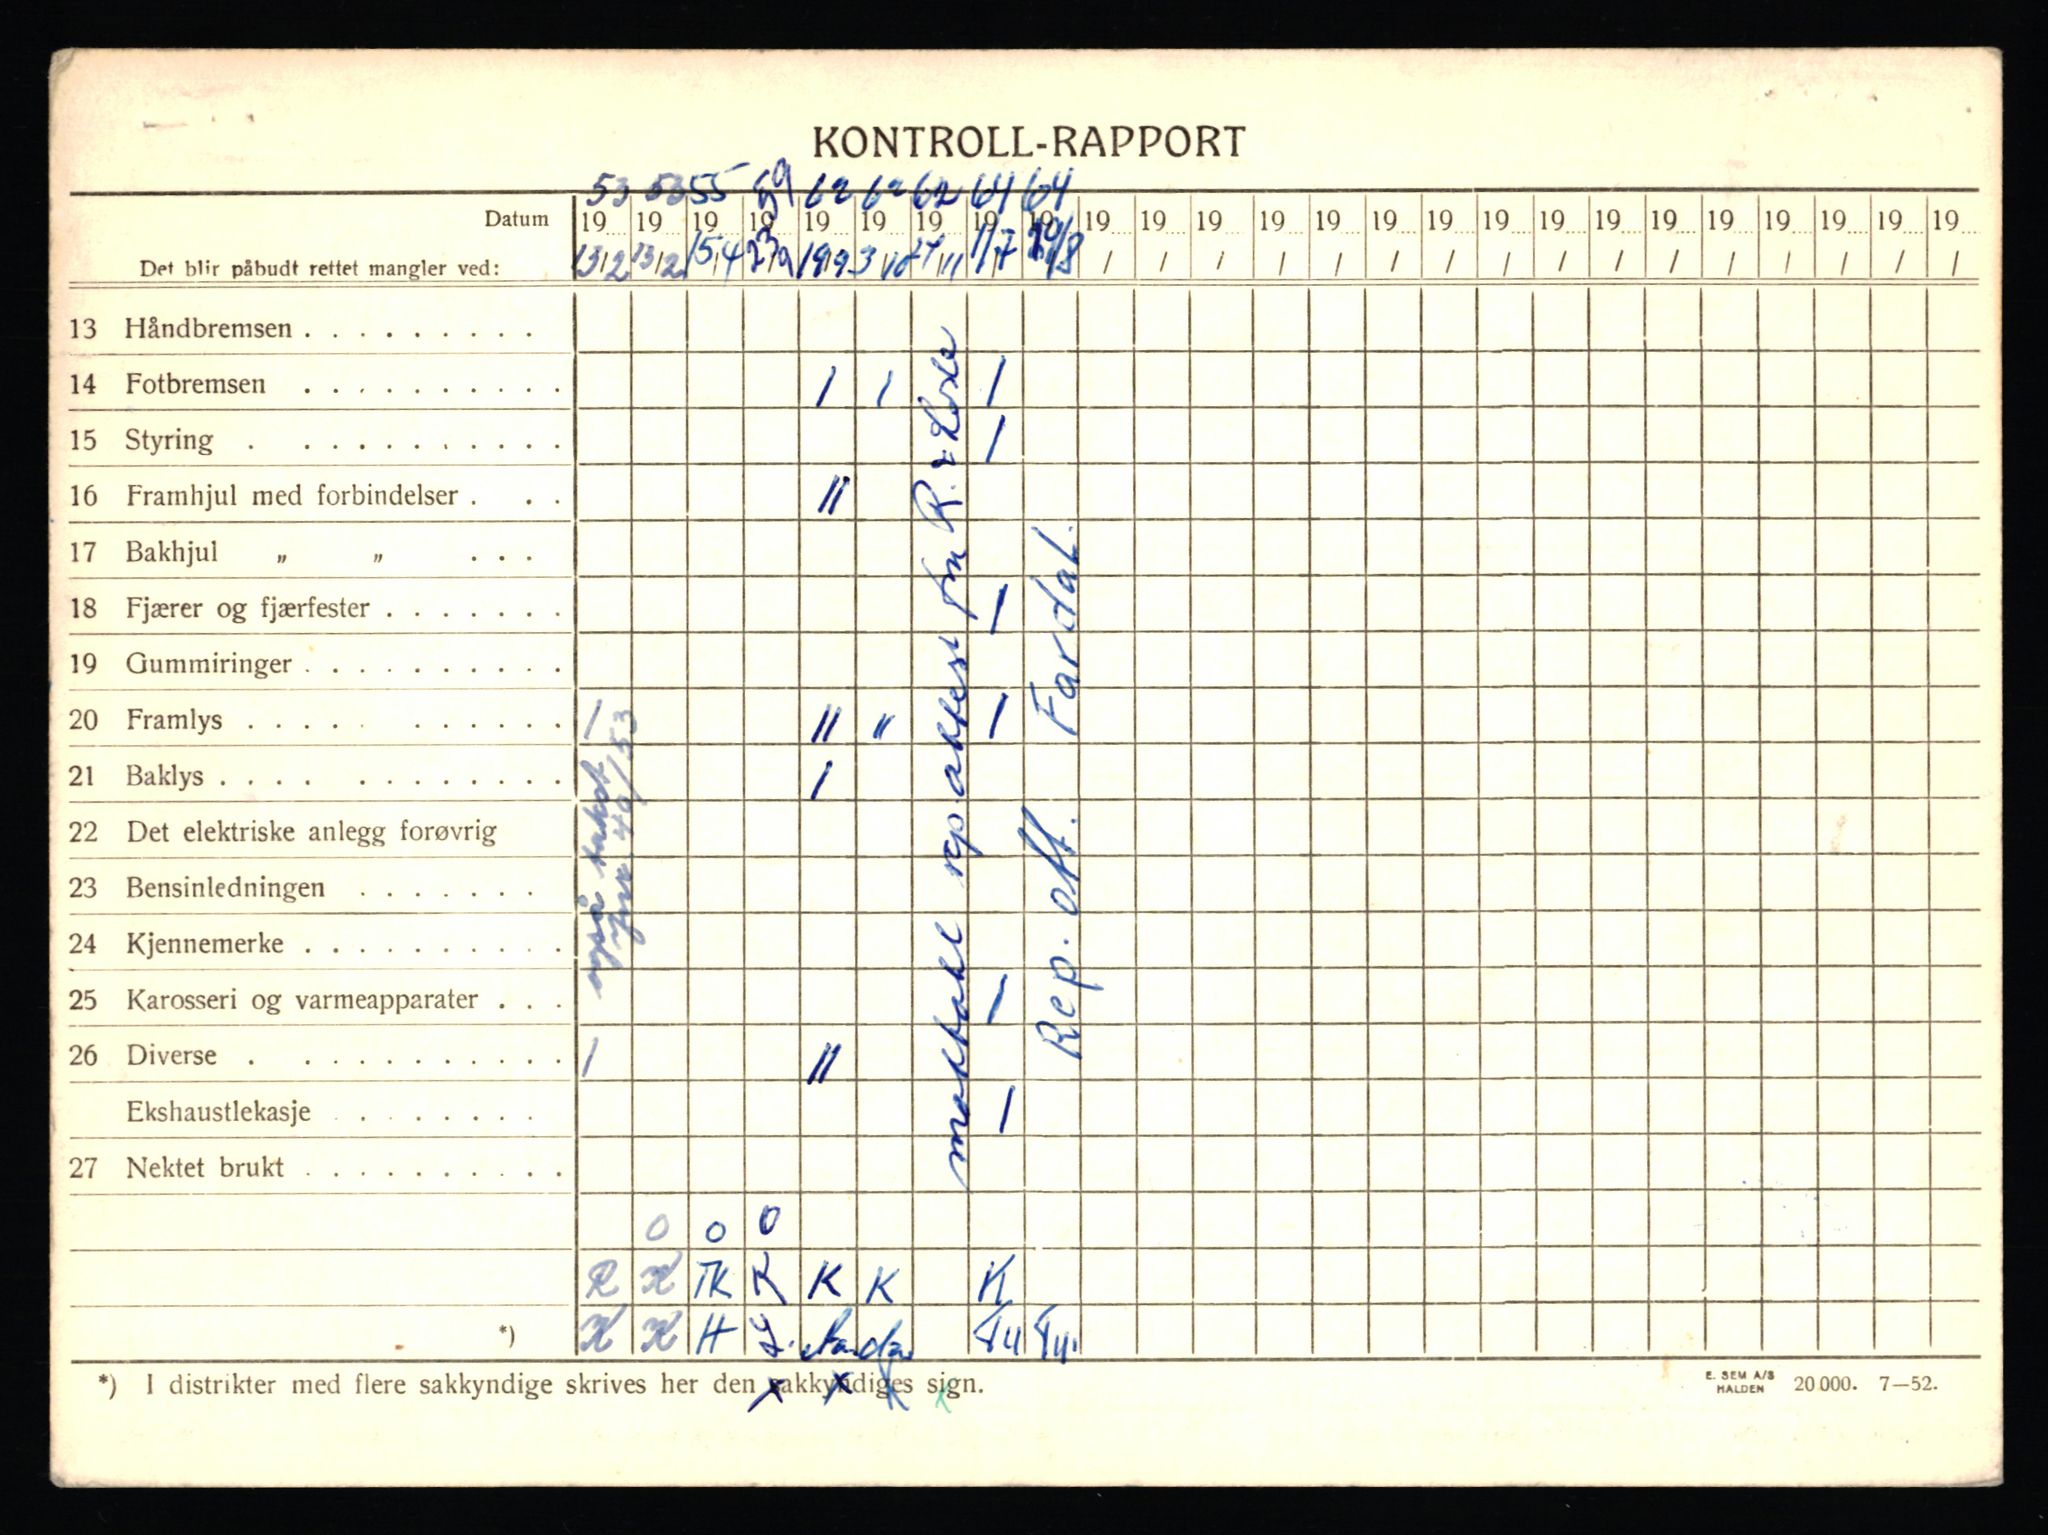 KONTROLL-RAPPORT
53 53 55 59 62 62 62 64 64
Datum 19 19 19 19 19 19 19 19 19 19 19 19 19 19 19 19 19 19 19 19 19 19 19 19 19
Det blir påbudt rettet mangler ved: 13/2 13/2 15/4 23/9 19/9 3/10 1/7 20/8 / / / / / / / / / / / / / / / /
13 Håndbremsen
14 Fotbremsen I I I
15 Styring I
16 Framhjul med forbindelser II
17 Bakhjul „ „
18 Fjærer og fjærfester I
19 Gummiringer
20 Framlys I II II I
21 Baklys I
22 Det elektriske anlegg forøvrig
23 Bensinledningen
24 Kjennemerke
25 Karosseri og varmeapparater I
26 Diverse I II
Ekshaustlekasje I
27 Nektet brukt
også
mottatt rep attest fra R.
Rep. att. Fardal.
O O O
R K TK K K K K
*) K K H
*) I distrikter med flere sakkyndige skrives her den sakkyndiges sign.
x x x x
E. SEM A/S
HALDEN 20 000. 7—52.